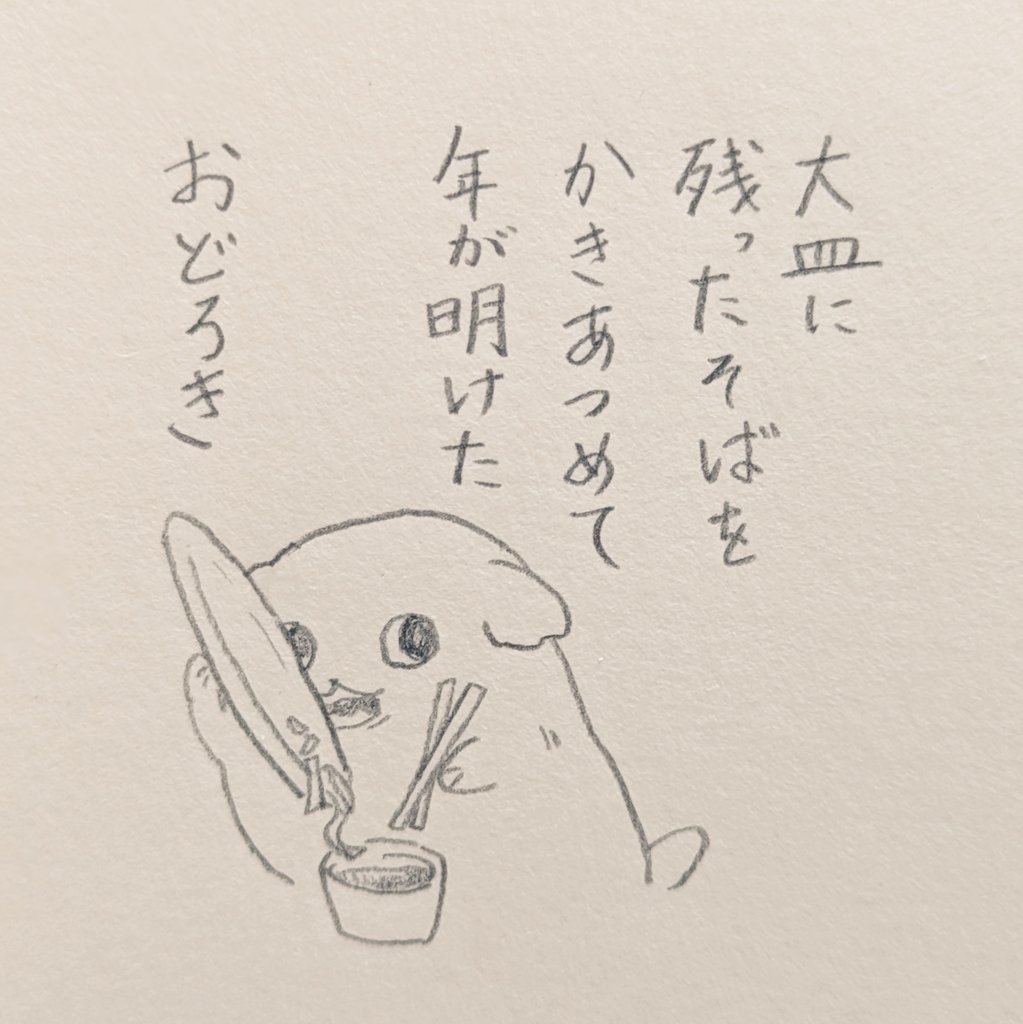 大皿に
残ったそばを
かきあつめて
年が明けた
おどろき